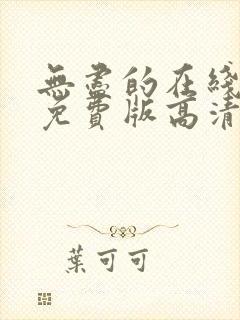 無盡的在綫
免費版高清
葉可可